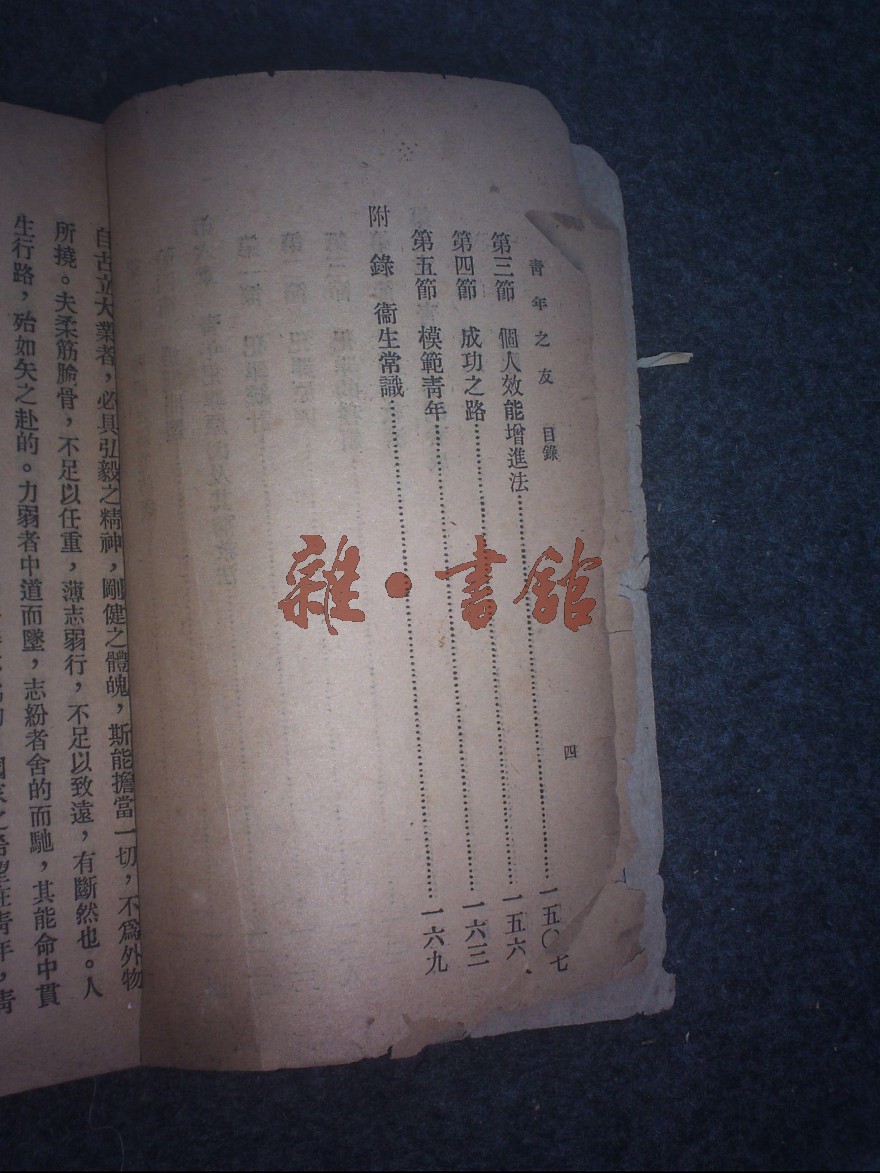 青年之友 目錄 四
第三節 個人效能增進法……一五〇
第四節 成功之路……一五六
第五節 模範青年……一六三
附錄 衞生常識……一六九
七
雜·書舘
自古立大業者，必具弘毅之精神，剛健之體魄，斯能擔當一切，不爲外物
所撓。夫柔筋脆骨，不足以任重，薄志弱行，不足以致遠，有斷然也。人
生行路，殆如矢之赴的。力弱者中道而墜，志紛者舍的而馳，其能命中貫
在青年，青